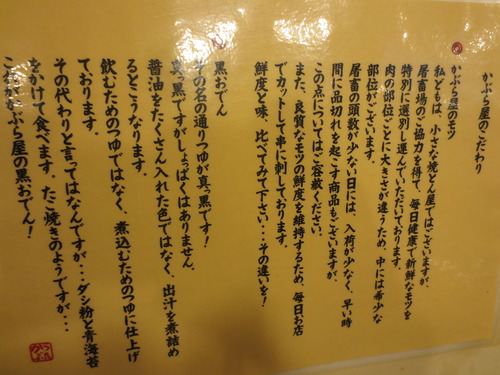 かぶら屋のこだわり
かぶら屋のモツ
私どもは、小さな焼とん屋ではございますが、
屠畜場のご協力を得て、毎日健康で新鮮なモツを
特別に選別し運んでいただいております。
肉の部位ごとに大きさが違うため、中には希少な
部位がございます。
屠畜の頭数が少ない日には、入荷が少なく、早い時
間に品切れを起こす商品もございますが、
この点についてはご容赦ください。
また、良質なモツの鮮度を維持するため、毎日お店
でカットして串に刺しております。
鮮度と味、比べてみて下さい・・・その違いを!
黒おでん
その名の通りつゆが真っ黒です!
真っ黒ですがしょっぱくはありません。
醤油をたくさん入れた色ではなく、出汁を煮詰め
るとこうなります。
飲むためのつゆではなく、煮込むためのつゆに仕上げ
ております。
その代わりと言ってはなんですが・・・ダシ粉と青海苔
をかけて食べます。たこ焼きのようですが・・・
これがかぶら屋の黒おでん!